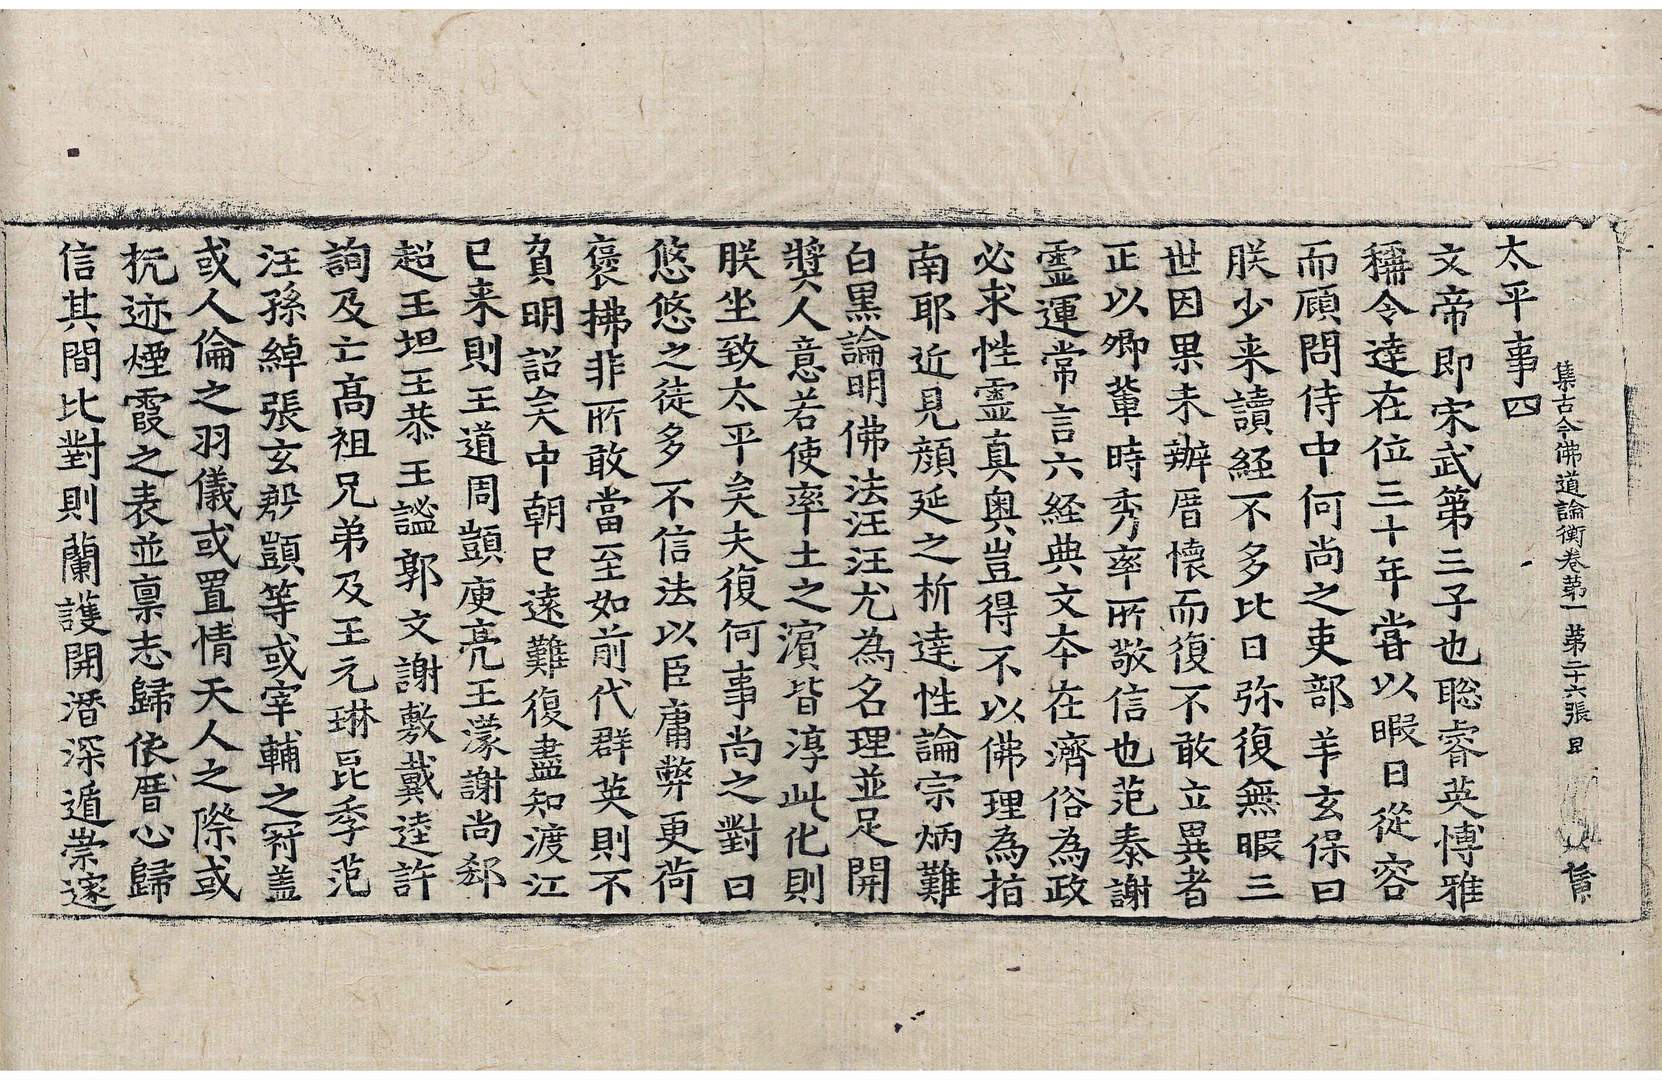 集古今佛道論衡卷第一 第二十六張 㠯
太平事四
文帝即宋武第三子也聡睿英博雅
稱令達在位三十年甞以暇日從容
而顧問侍中何尚之吏部羊玄保曰
朕少来讀經不多比日弥復無暇三
世因果未辦厝懷而復不敢立異者
正以卿輩時秀率所敬信也范泰謝
靈運常言六経典文夲在濟俗為政
必求性靈真奥豈得不以佛理為指
南耶近見顔延之析達性論宗炳難
白黒論明佛法汪汪尤為名理並足開
獎人意若使率土之濵皆淳此化則
朕坐致太平矣夫復何事尚之對曰
悠悠之徒多不信法以臣庸弊更荷
襃拂非所敢當至如前代群英則不
負明詔矣中朝已遠難復盡知渡江
已来則王道周顗庾亮王濛謝尚郄
超王坦王恭王謐郭文謝敷戴逵許
詢及亡髙祖兄弟及王元琳昆季范
汪孫綽張玄郗顗等或宰輔之冠盖
或人倫之羽儀或置情天人之際或
抗迹煙霞之表並禀志歸依厝心歸
信其間比對則蘭護開潛深遁崇邃